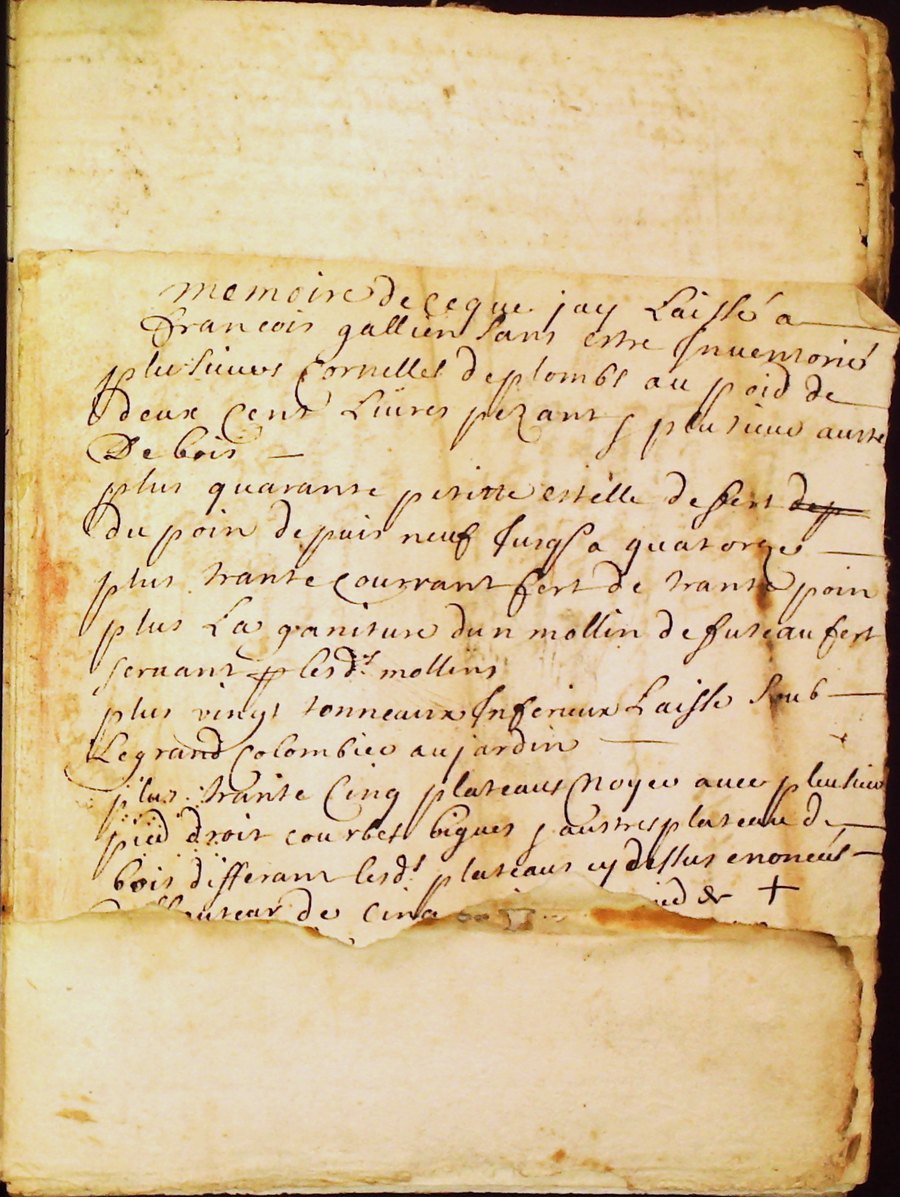 memoire de ce que jay Laissé a
francois gallien sans estre Inventorié
plusieurs Cornelles de plombs au poid de
deux Cent Livres pezant & plusieur autre
De bois
plus quarante petitte esteille de fert dep
du poin depuis neuf Jusqsa quatorze
plus trante Courrant fert de trante poin
plus La garniture dun mollin de futeau fert
servant lesdts mollins
plus vingt tonneaux Inferieux Laisse soub
Le grand Colombier au jardin
plus trante Cinq plateaus Noyer avec plusieur
pied droit courbes bigues & autres plateau de
bois differant lesdts plateaus cy dessus enoncés
hauteur de Cinq pied & +